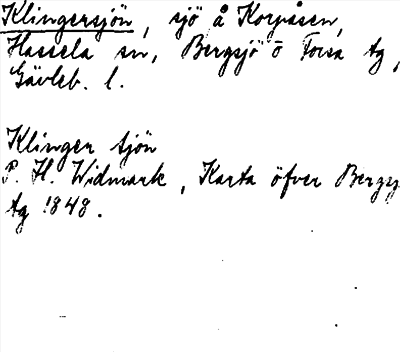 Klingersjön, sjö å Korpåsen,
Hassela sn, Bergsjö o Forsa tg,
Gävleb. l.
Klinger sjön
P. H. Widmark, Karta öfver Bergsj
tg 1848.